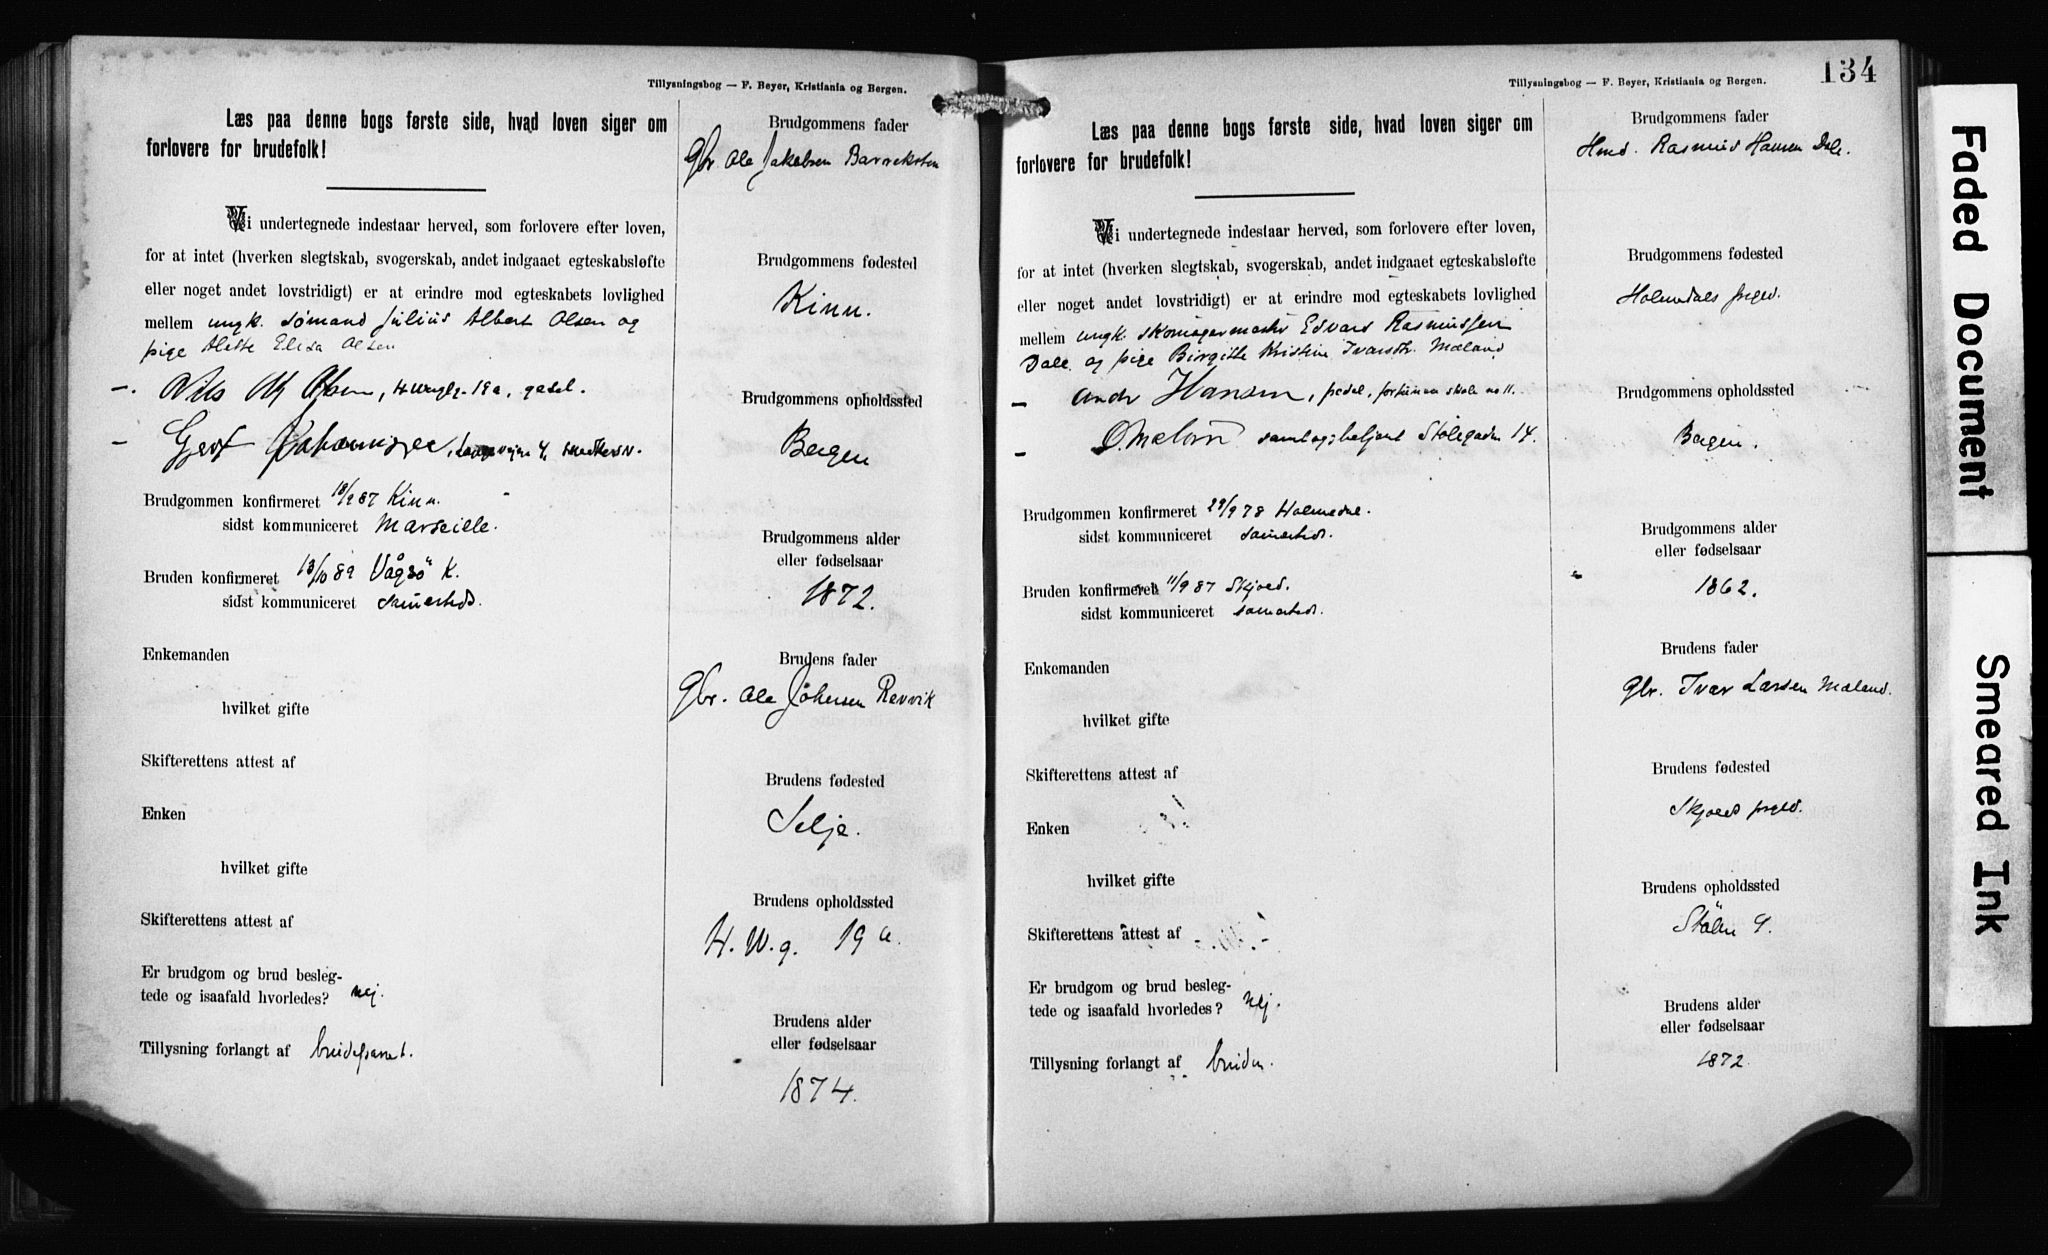 Tillysningsbog — F. Beyer, Kristiania og Bergen.
Læs paa denne bogs første side, hvad loven siger om
forlovere for brudefolk!
Vi undertegnede indestaar herved, som forlovere efter loven,
for at intet (hverken slegtskab, svogerskab, andet indgaaet egteskabsløfte
eller noget andet lovstridigt) er at erindre mod egteskabets lovlighed
mellem ungk. sømand Julius Albert Olsen og
pige Alette Elisa Olsen
—. Nils Olsen, 19a, gasel.
— Gert Johannsen, 4,
Brudgommen konfirmeret 18/9 87 Kinn.
sidst kommuniceret Marseille.
Bruden konfirmeret 13/10 89 Vågsö K.
sidst kommuniceret samesteds.
Enkemanden
hvilket gifte
Skifterettens attest af
Enken
hvilket gifte
Skifterettens attest af
Er brudgom og brud besleg-
tede og isaafald hvorledes? nej.
Tillysning forlangt af brudeparret.
Brudgommens fader
Gbr. Ole Jakobsen Barreksten
Brudgommens fødested
Kinn.
Brudgommens opholdssted
Bergen
Brudgommens alder
eller fødselsaar
1872.
Brudens fader
Gbr. Ole Johnsen Revvik
Brudens fødested
Selje.
Brudens opholdssted
H. W. g. 19 a.
Brudens alder
eller fødselsaar
1874.
Tillysningsbog — F. Beyer, Kristiania og Bergen.
134
Læs paa denne bogs første side, hvad loven siger om
forlovere for brudefolk!
Vi undertegnede indestaar herved, som forlovere efter loven,
for at intet (hverken slegtskab, svogerskab, andet indgaaet egteskabsløfte
eller noget andet lovstridigt) er at erindre mod egteskabets lovlighed
mellem ungk. skomagermester Edvard Rasmussen
Dale og pige Birgitte Kristine Ivarsdtr. Mæland
— Andr Hansen, pedel, skole no 11.
— O. Mæland Stølegaden 14.
Brudgommen konfirmeret 29/9 78 Holmedal.
sidst kommuniceret samesteds.
Bruden konfirmeret 11/9 87 Skjold.
sidst kommuniceret samesteds.
Enkemanden
hvilket gifte
Skifterettens attest af
Enken
hvilket gifte
Skifterettens attest af
Er brudgom og brud besleg-
tede og isaafald hvorledes? nej.
Tillysning forlangt af bruden.
Brudgommens fader
Hmd. Rasmus Hansen Dale.
Brudgommens fødested
Holmedals prgld.
Brudgommens opholdssted
Bergen.
Brudgommens alder
eller fødselsaar
1862.
Brudens fader
Gbr. Ivar Larsen Mæland.
Brudens fødested
Skjolds prgld.
Brudens opholdssted
Stölen 9.
Brudens alder
eller fødselsaar
1872.
Faded Document
Smeared Ink